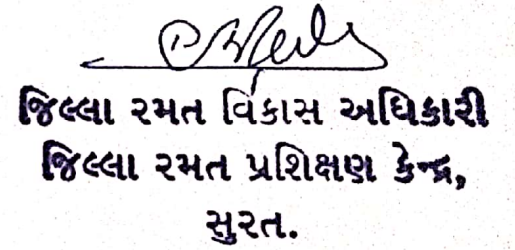 જિલ્લા રમત વિકાસ અધિકારી
જિલ્લા રમત પ્રશિક્ષણ કેન્દ્ર,
સુરત.